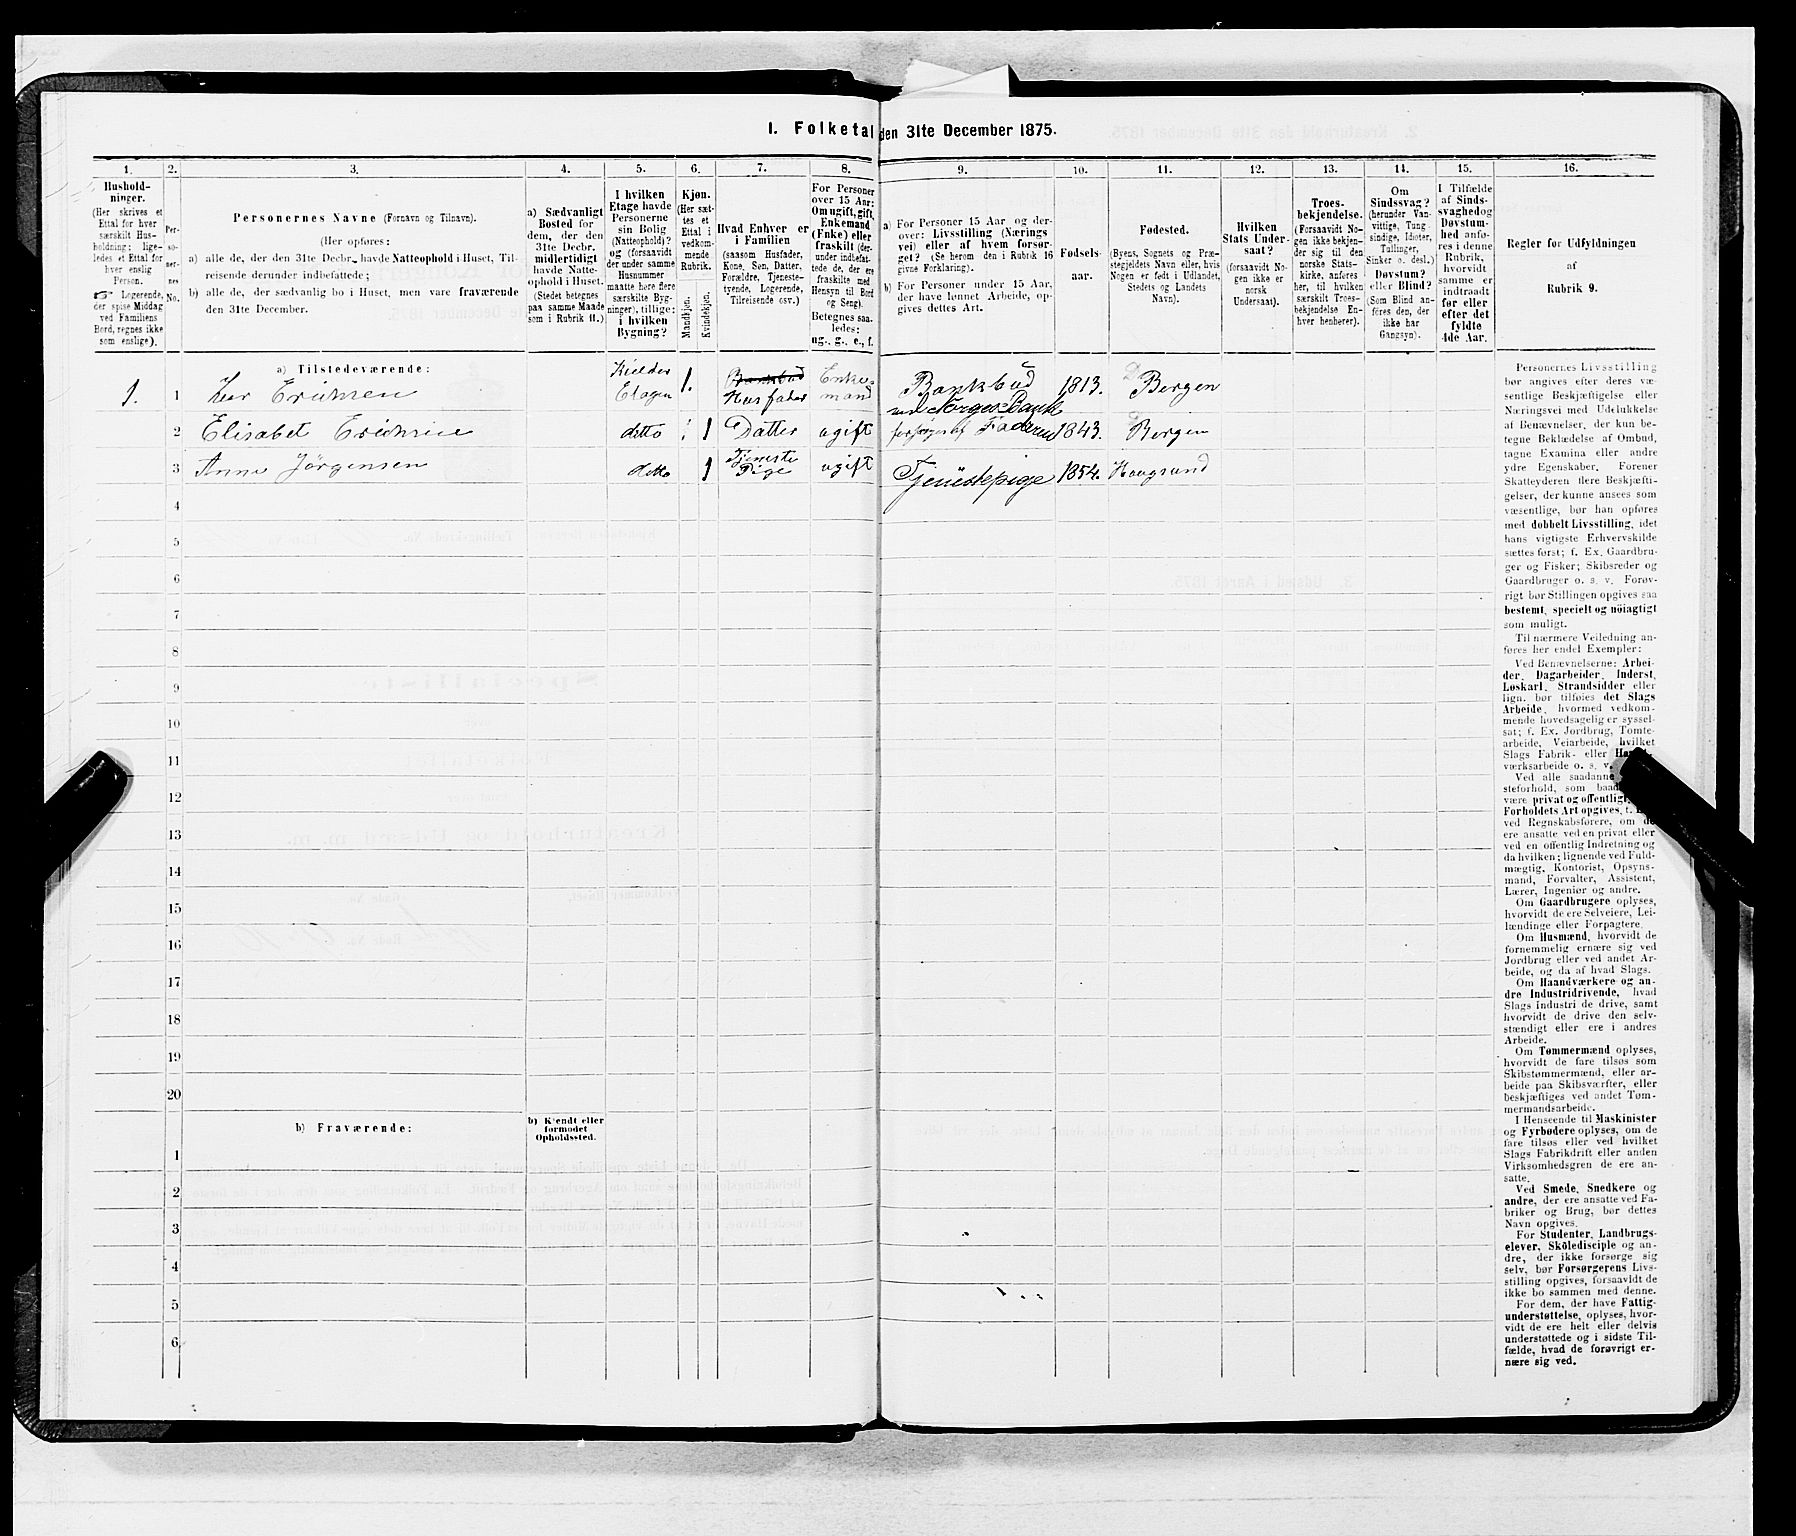 I. Folketal den 31te December 1875.
1. 2. 3. 4. 5. 6. 7. 8. 9. 10. 11. 12. 13. 14. 15. 16.
Hushold-
ninger.
(Her skrives et
Ettal for hver
særskilt Hus-
holdning; lige-
ledes et Ettal for
hver enslig
Person.
☞ Logerende,
der spise Middag
ved Familiens
Bord, regnes ikke
som enslige).
Per-
so-
ner-
nes
No.
Personernes Navne (Fornavn og Tilnavn).
(Her opføres:
a) alle de, der den 31te Decbr. havde Natteophold i Huset, Til-
reisende derunder indbefattede;
b) alle de, der sædvanlig bo i Huset, men vare fraværende
den 31te December.
a) Sædvanligt
Bosted for
dem, der den
31te Decbr.
midlertidigt
havde Natte-
ophold i Huset.
(Stedet betegnes
paa samme Maade
som i Rubrik 11.)
I hvilken
Etage havde
Personerne
sin Bolig
(Natteophold)?
og (forsaavidt
der under samme
Husnummer
maatte høre flere
særskilte Byg-
ninger), tillige:
i hvilken
Bygning?
Kjøn.
(Her sæt-
tes et
Ettal i
vedkom-
mende
Rubrik.
Mandkjøn.
Kvindekjøn.
Hvad Enhver er
i Familien
(saasom Husfader,
Kone, Søn, Datter,
Forældre, Tjeneste-
tyende, Logerende,
Tilreisende osv.)
For Personer
over 15 Aar:
Om ugift, gift,
Enkemand
(Enke) eller
fraskilt (der-
under indbefat-
tede de, der ere
fraskilte med
Hensyn til Bord
og Seng).
Betegnes saa-
ledes:
ug., g., e., f.
a) For Personer 15 Aar og der-
over: Livsstilling (Nærings
vei) eller af hvem forsør-
get? (Se herom den i Rubrik 16
givne Forklaring).
b) For Personer under 15 Aar,
der have lønnet Arbeide, op-
gives dettes Art.
Fødsels-
aar.
Fødested.
(Byens, Sognets og Præ-
stegjeldets Navn eller, hvis
Nogen er født i Udlandet,
Stedets og Landets
Navn).
Hvilken
Stats Under-
saat?
(forsaavidt No-
gen ikke er
norsk
Undersaat).
Troes-
bekjendelse.
(Forsaavidt No-
gen ikke bekjen-
der sig til den
norske Stats-
kirke, anføres
her, til hvilken
særskilt Troes-
bekjendelse En-
hver henhører).
Om
Sindssvag?
(herunder Van-
vittige, Tung-
sindige, Idioter,
Tullinger,
Sinker o. desl.)
Døvstum?
eller Blind?
(Som Blind an-
føres den, der
ikke har
Gangsyn).
I Tilfælde
af Sinds-
svaghed og
Døvstum-
hed anfø-
res i denne
Rubrik,
hvorvidt
samme er
indtraadt
før eller
efter det
fyldte
4de Aar.
Regler for Udfyldningen
af
Rubrik 9.
a) Tilstedeværende:
1. 1 Eriksen Kielder Etagen 1. Bankbud Husfader Enke-mand Bankbud ved Norges Bank 1813. Bergen
2 Elisabet Eriksen ditto 1 Datter ugift forsørges af Faderen 1843. Bergen
3 Anne Jörgensen ditto 1 Tjeneste Pige ugift Tjenestepige 1854. Haugsund
4
5
6
7
8
9
10
11
12
13
14
15
16
17
18
19
20
b) Fraværende:
b) Kjendt eller
formodet
Opholdssted.
1
2
3
4
5
6
Personernes Livsstilling
bør angives efter deres væ-
sentlige Beskjæftigelse eller
Næringsvei med Udelukkelse
af Benævnelser, der kun be-
tegne Beklædelse af Ombud,
tagne Examina eller andre
ydre Egenskaber. Forener
Skatteyderen flere Beskjæfti-
gelser, der kunne ansees som
væsentlige, bør han opføres
med dobbelt Livsstilling, idet
hans vigtigste Erhvervskilde
sættes først; f. Ex. Gaardbru-
ger og Fisker; Skibsreder og
Gaardbruger o. s. v. Forøv-
rigt bør Stillingen opgives saa
bestemt, specielt og nöiagtigt
som muligt.
Til nærmere Veiledning an-
føres her endel Exempler:
Ved Benævnelserne: Arbei-
der, Dagarbeider, Inderst,
Løskarl, Strandsidder eller
lign. bør tilføies det Slags
Arbeide, hvormed vedkom-
mende hovedsagelig er syssel-
sat; f. Ex. Jordbrug, Tomte-
arbeide, Veiarbeide, hvilket
Slags Fabrik- eller
værksarbeide o. s. v.
Ved alle saadanne
steforhold, som
være privat og offentlig,
Forholdets Art opgives, t.
ved Regnskabsførere, om de
ere ansatte ved en privat eller
ved en offentlig Indretning og
da hvilken; lignende ved Fuld-
mægtig, Kontorist, Opsyns-
mand, Forvalter, Assistent,
Lærer, Ingeniør og andre.
Om Gaardbrugere oplyses,
hvorvidt de ere Selveiere, Lei-
lændinge eller Forpagtere.
Om Husmænd, hvorvidt de
fornemmelig ernære sig ved
Jordbrug eller ved andet Ar-
beide, og da af hvad Slags.
Om Haandværkere og an-
dre Industridrivende, hvad
Slags Industri de drive, samt
hvorvidt de drive den selv-
stændigt eller ere i andres
Arbeide.
Om Tømmermænd oplyses,
hvorvidt de fare tilsøs som
Skibstømmermænd, eller ar-
beide paa Skibsværfter, eller
beskjæftiges ved andet Tøm-
mermandsarbeide.
I Henseende til Maskinister
og Fyrbødere oplyses, om de
fare tilsøs eller ved hvilket
Slags Fabrikdrift eller anden
Virksomhedsgren de ere an-
satte.
Ved Smede, Snedkere og
andre, der ere ansatte ved Fa-
briker og Brug, bør dettes
Navn opgives.
For Studenter, Landbrugs-
elever, Skoledisciple og an-
dre, der ikke forsørge sig
selv, bør Forsørgerens Livs-
stilling opgives, forsaavidt de
ikke bo sammen med denne.
For dem, der have Fattig-
understøttelse, oplyses, hvor-
vidt de ere helt eller delvis
understøttede og i sidste Til-
fælde, hvad de forøvrigt er-
nære sig ved.